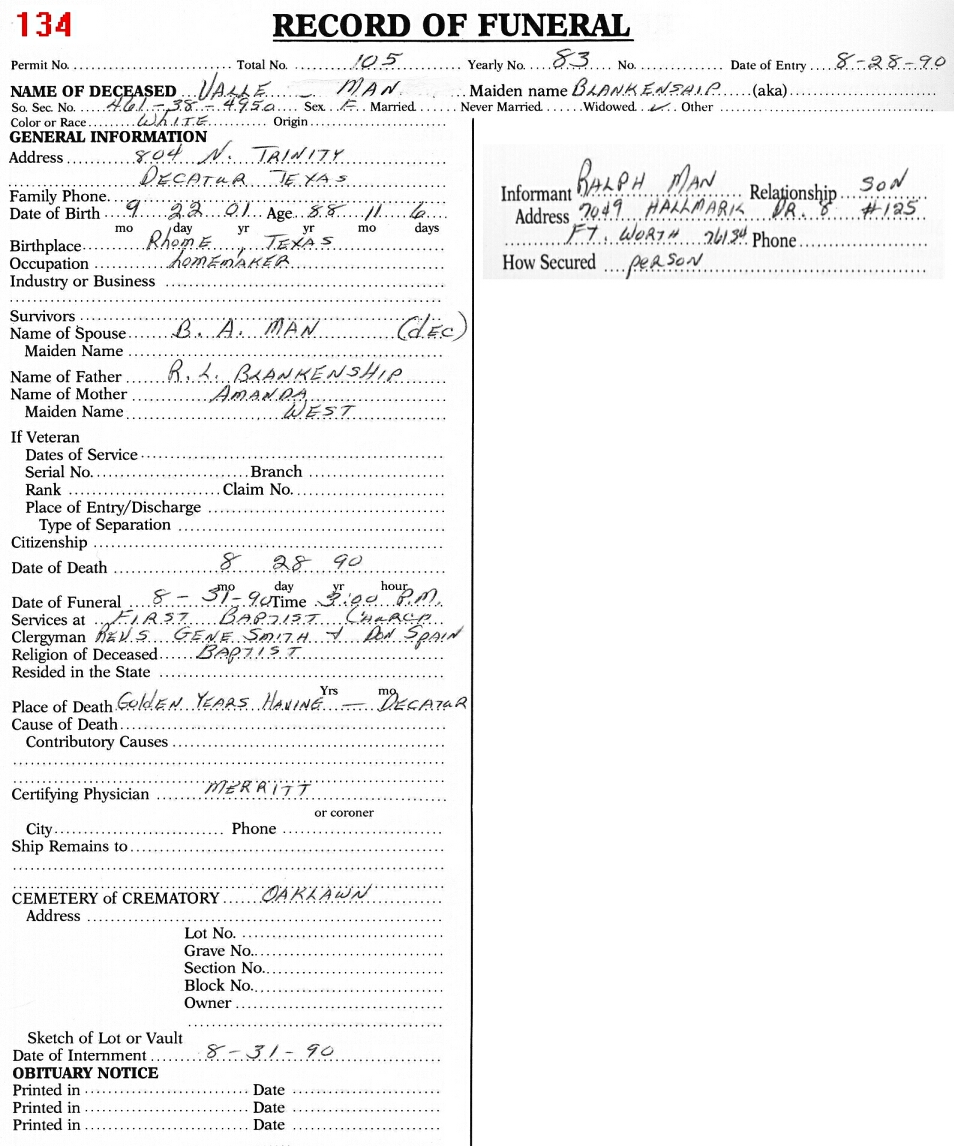 134
RECORD OF FUNERAL
Permit No. Total No. 105 Yearly No. 83 No. Date of Entry 8-28-90
NAME OF DECEASED VALLE - MAN Maiden name BLANKENSHIP (aka)
So. Sec. No. 461-38-4950 Sex F Married Never Married Widowed ✓ Other
Color or Race WHITE Origin
GENERAL INFORMATION
Address 804 N. TRINITY
DECATUR TEXAS
Family Phone
Date of Birth 9 22 01 Age 88 11 6
mo day yr yr mo days
Birthplace RHOME, TEXAS
Occupation HOMEMAKER
Industry or Business
Survivors
Name of Spouse B. A. MAN (dEC)
Maiden Name
Name of Father R. L. BLANKENSHIP
Name of Mother AMANDA
Maiden Name WEST
If Veteran
Dates of Service
Serial No. Branch
Rank Claim No.
Place of Entry/Discharge
Type of Separation
Citizenship
Date of Death 8 28 90
mo day yr hour
Date of Funeral 8-31-90 Time 3:00 P.M.
Services at FIRST BAPTIST
Clergyman REVS. GENE SMITH + DON SPAIN
Religion of Deceased BAPTIST
Resided in the State
Yrs mo
Place of Death GOLDEN YEARS HAVINE — DECATUR
Cause of Death
Contributory Causes
Certifying Physician MERRITT
or coroner
City Phone
Ship Remains to
CEMETERY of CREMATORY OAKLAWN
Address
Lot No.
Grave No.
Section No.
Block No.
Owner
Sketch of Lot or Vault
Date of Internment 8-31-90
OBITUARY NOTICE
Printed in Date
Printed in Date
Printed in Date
Informant RALPH MAN Relationship SON
Address 7049 HALLMARK DR. #125
FT. WORTH 76134 Phone
How Secured PERSON